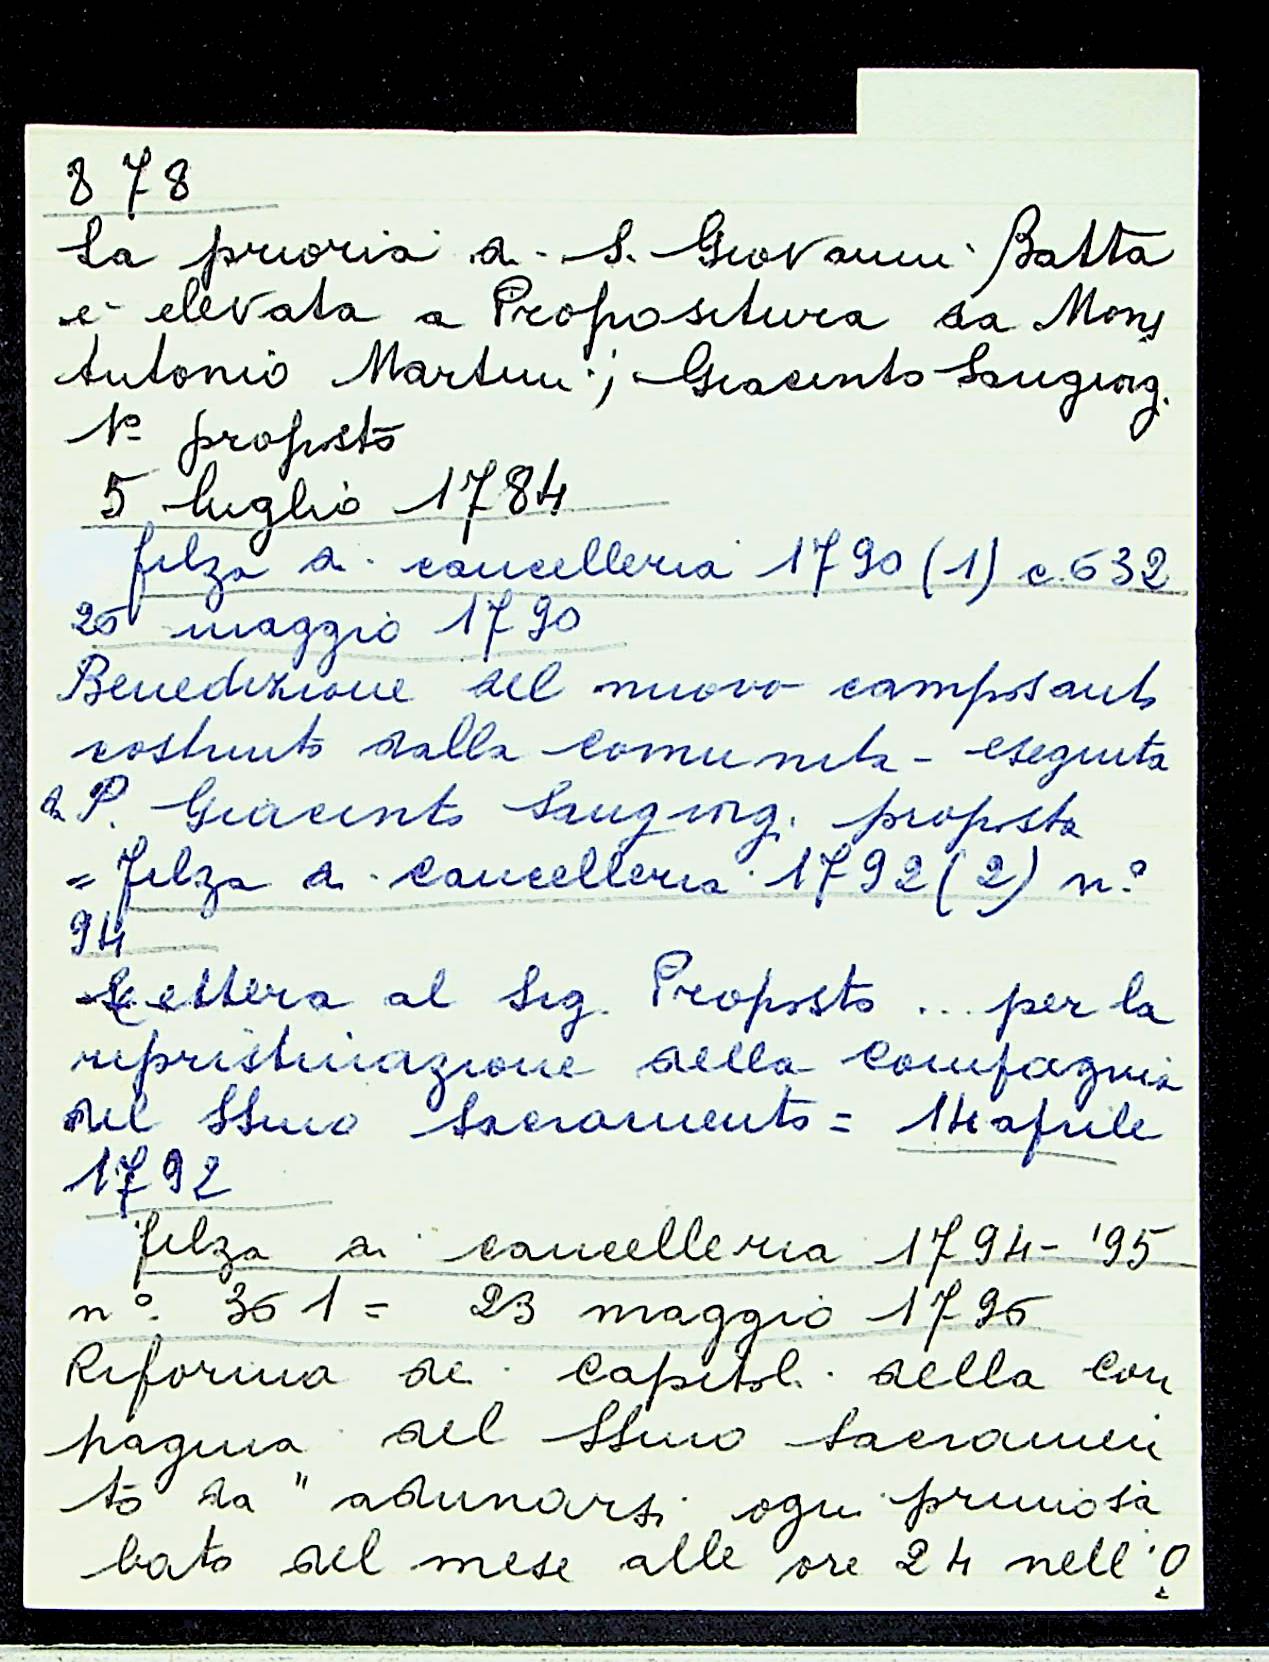 878
La prioria di S. Giovanni Batta
è elevata a Propositura da Mons
Antonio Martini; Giacinto Sangiorg.
1º proposto
5 luglio 1784
filza di cancelleria 1790 (1) c. 632
26 maggio 1790
Benedizione del nuovo camposanto
costruito dalla comunità - eseguita
da P. Giacinto Sangiorg. proposto
= Filza di cancelleria 1792 (2) n.º
94
Lettera al Sig. Proposto ... per la
ripristinazione della Compagnia
del SSmo Sacramento = 14 aprile
1792
filza di cancelleria 1794-'95
nº. 361 = 23 maggio 1796
Riforma dei capitoli della Com
pagnia del SSmo Sacramen
to da "adunarsi ogni primo sa
bato del mese alle ore 24 nell'O